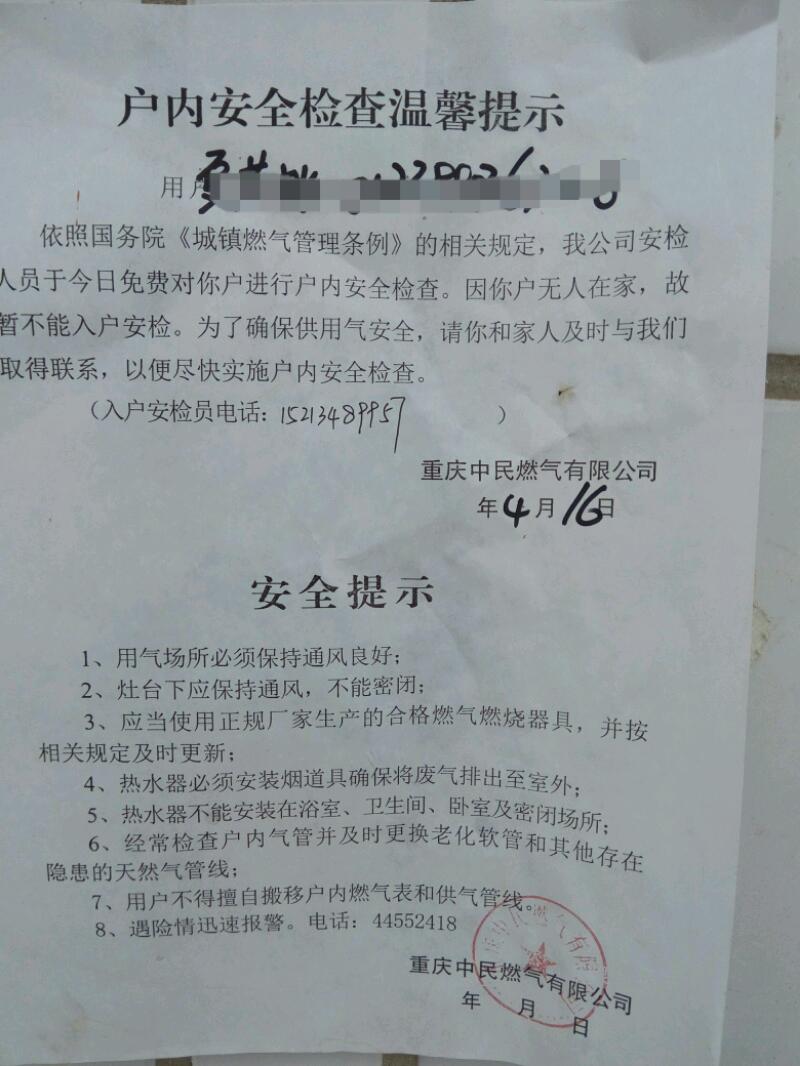 户内安全检查温馨提示
用户
依照国务院《城镇燃气管理条例》的相关规定，我公司安检
人员于今日免费对你户进行户内安全检查。因你户无人在家，故
暂不能入户安检。为了确保供用气安全，请你和家人及时与我们
取得联系，以便尽快实施户内安全检查。
（入户安检员电话：15213489957）
重庆中民燃气有限公司
年4月16日
安全提示
1、用气场所必须保持通风良好；
2、灶台下应保持通风，不能密闭；
3、应当使用正规厂家生产的合格燃气燃烧器具，并按
相关规定及时更新；
4、热水器必须安装烟道具确保将废气排出至室外；
5、热水器不能安装在浴室、卫生间、卧室及密闭场所；
6、经常检查户内气管并及时更换老化软管和其他存在
隐患的天然气管线；
7、用户不得擅自搬移户内燃气表和供气管线。
8、遇险情迅速报警。电话：44552418
重庆中民燃气有限公司
年 月 日